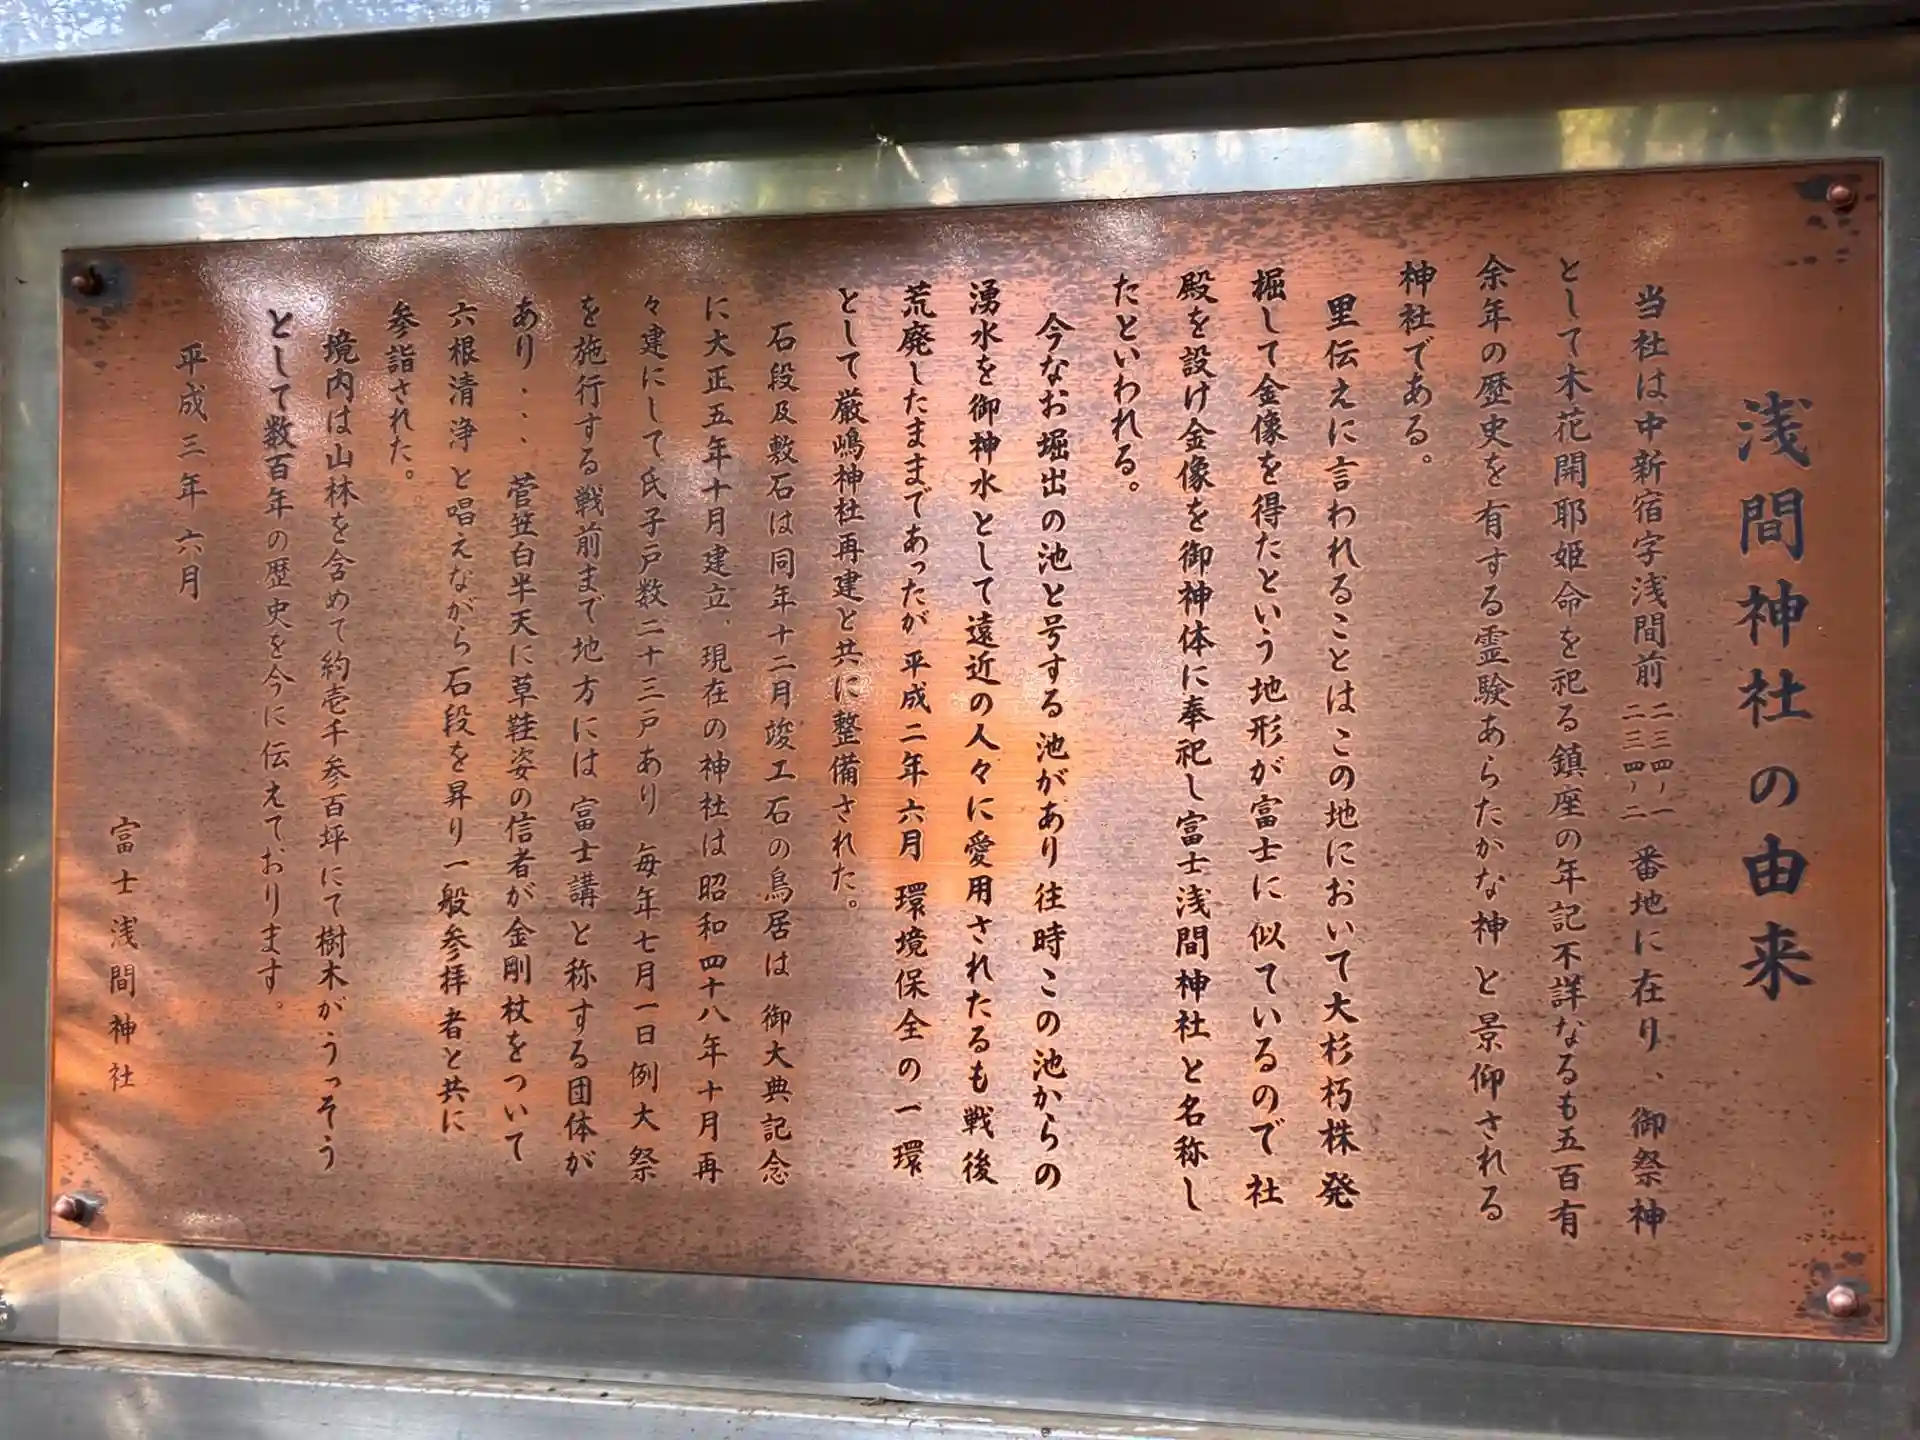 浅間神社の由来
当社は中新宿字浅間前二三四ー一二三四ー二番地に在り、御祭神
として木花開耶姫命を祀る鎮座の年記不詳なるも五百有
余年の歴史を有する霊験あらたかな神と景仰される
神社である。
里伝えに言われることはこの地において大杉朽株発
掘して金像を得たという地形が富士に似ているので社
殿を設け金像を御神体に奉祀し富士浅間神社と名称し
たといわれる。
今なお堀出の池と号する池があり往時この池からの
湧水を御神水として遠近の人々に愛用されたるも戦後
荒廃したままであったが平成二年六月環境保全の一環
として厳嶋神社再建と共に整備された。
石段及敷石は同年十二月竣工石の鳥居は御大典記念
に大正五年十月建立、現在の神社は昭和四十八年十月再
々建にして氏子戸数二十三戸あり 毎年七月一日例大祭
を施行する戦前まで地方には富士講と称する団体が
あり・・・ 菅笠白半天に草鞋姿の信者が金剛杖をついて
六根清浄と唱えながら石段を昇り一般参拝者と共に
参詣された。
境内は山林を含めて約壱千参百坪にて樹木がうっそう
として数百年の歴史を今に伝えております。
平成三年六月
富士浅間神社